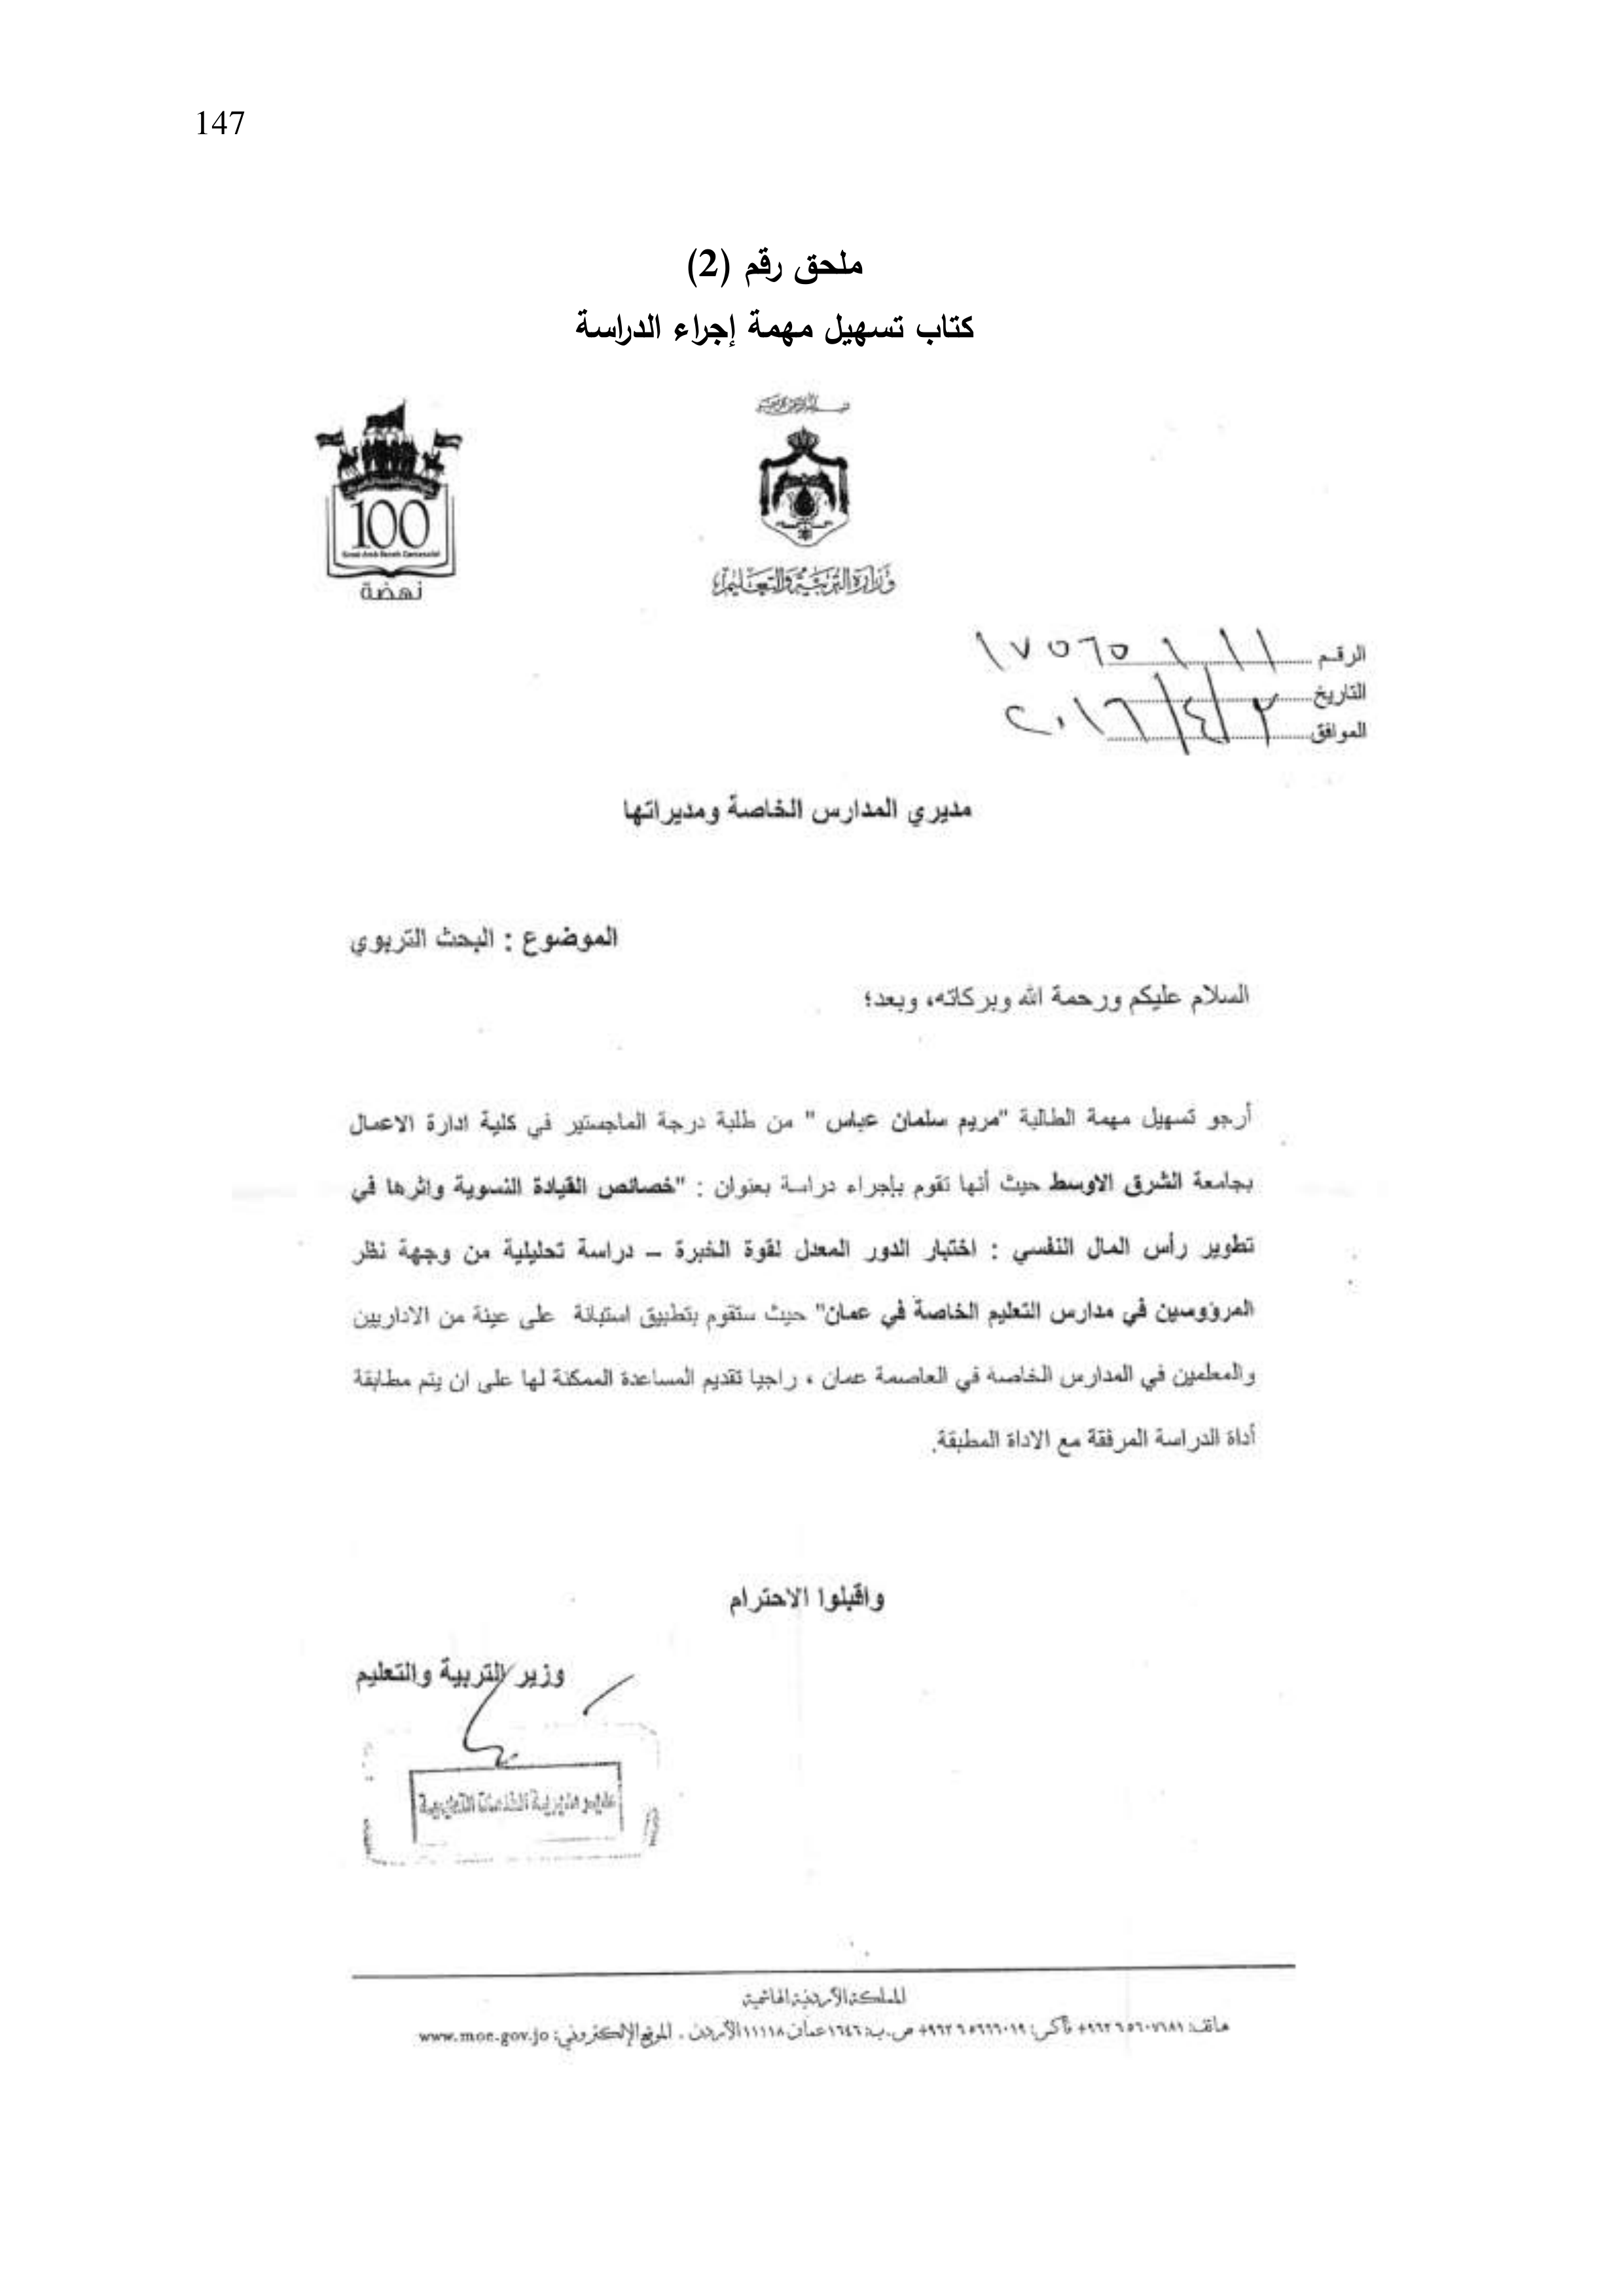 147
ملحق رقم (2)
كتاب تسهيل مهمة إجراء الدراسة
100
Great Arab Revolt Centennial
نهضة
وزارة التربية والتعليم
الرقم
التاريخ
الموافق ٢/٤/٢٠١٦
مديري المدارس الخاصة ومديراتها
الموضوع : البحث التربوي
السلام عليكم ورحمة الله وبركاته، وبعد؛
أرجو تسهيل مهمة الطالبة "مريم سلمان عباس " من طلبة درجة الماجستير في كلية ادارة الاعمال
بجامعة الشرق الاوسط حيث أنها تقوم بإجراء دراسة بعنوان : "خصائص القيادة النسوية واثرها في
تطوير رأس المال النفسي : اختبار الدور المعدل لقوة الخبرة – دراسة تحليلية من وجهة نظر
المرؤوسين في مدارس التعليم الخاصة في عمان" حيث ستقوم بتطبيق استبانة على عينة من الاداريين
والمعلمين في المدارس الخاصة في العاصمة عمان ، راجيا تقديم المساعدة الممكنة لها على ان يتم مطابقة
أداة الدراسة المرفقة مع الاداة المطبقة.
واقبلوا الاحترام
وزير التربية والتعليم
المملكة الأردنية الهاشمية
هاتف: ٥٦٠٧١٨١ ٦ ٩٦٢+ فاكس: ٥٦٦٦٠١٩ ٦ ٩٦٢+ ص.ب: ١٦٤٦ عمان ١١١١٨ الأردن . الموقع الإلكتروني: www.moe.gov.jo